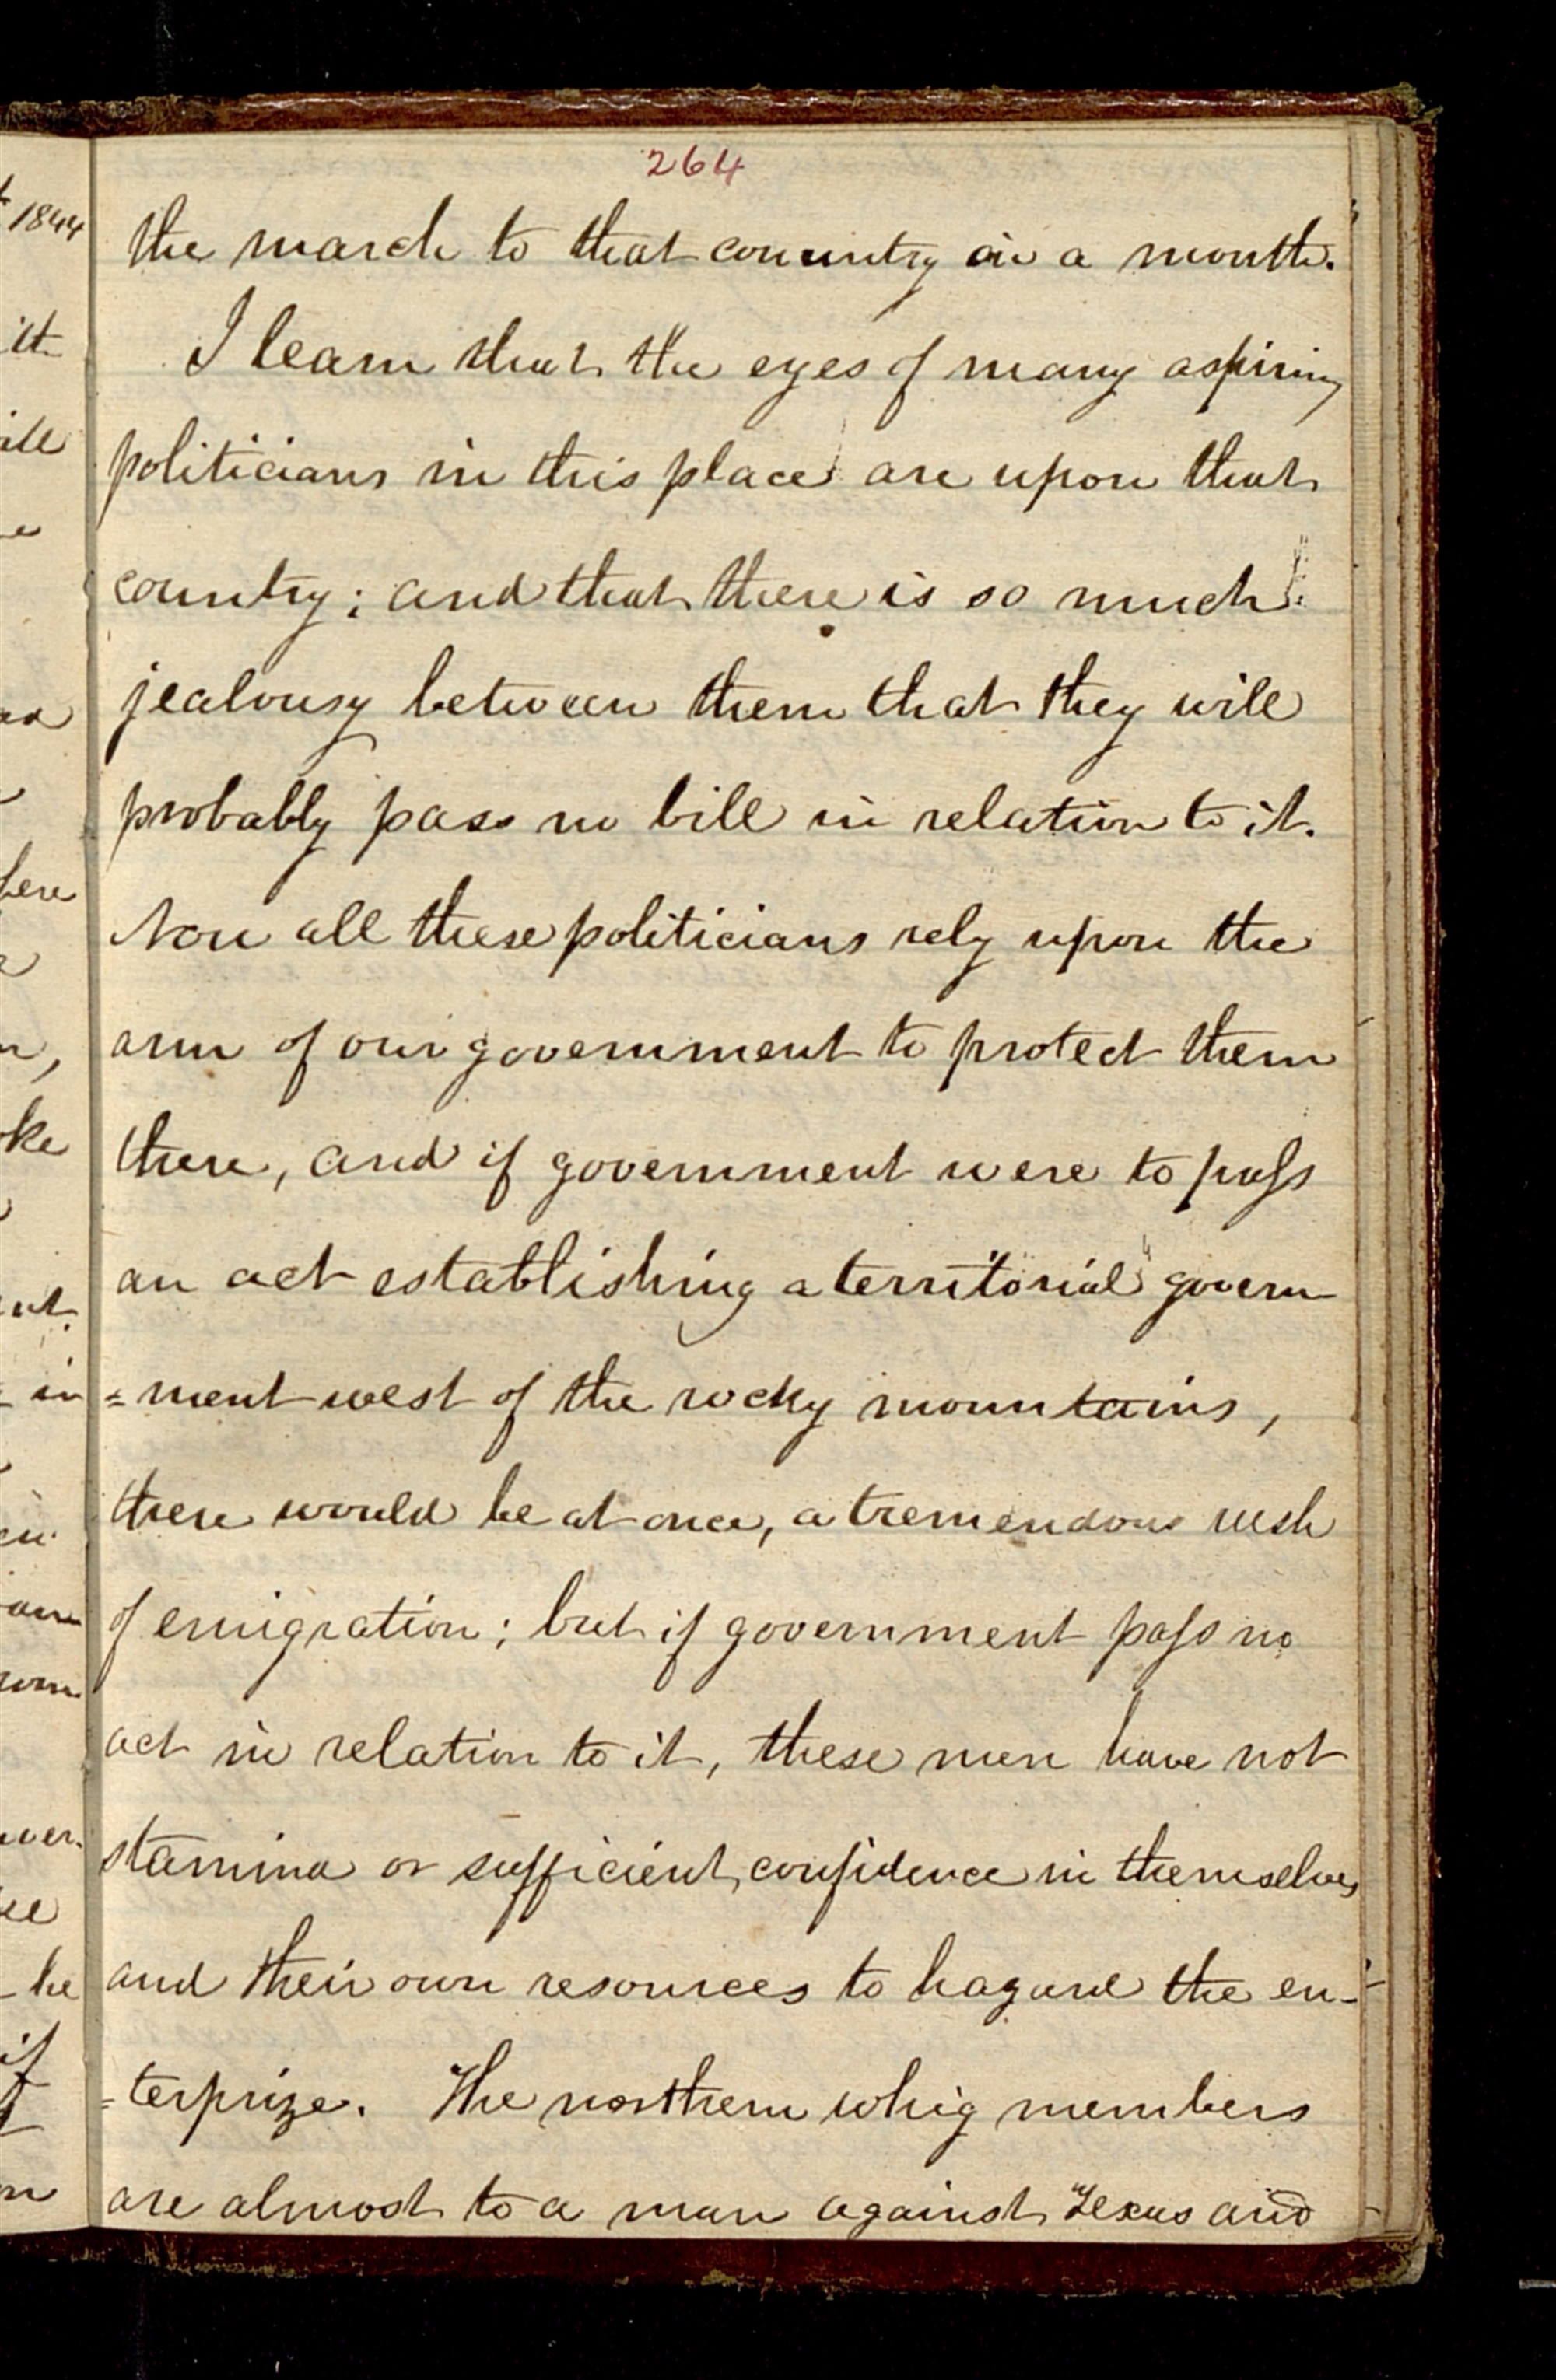 264
the march to that conuntry in a month.
I learn that the eyes of many aspiring
politicians in this place are upon that
country; and that there is so much
jealousy between them that they will
probably pass no bill in relation to it.
Now all these politicians rely upon the
arm of our government to protect them
there, and if government were to pass
an act establishing a territorial govern
=ment west of the rocky mountains,
there would be at once, a tremendous rush
of emigration; but if government pass no
act in relation to it, these men have not
stamina or sufficient confidence in themselves
and their own resources to hazard the en-
=terprize. The northern whig members
are almost to a man against Texas and
1844
it
ill
here
oke
in
he
if